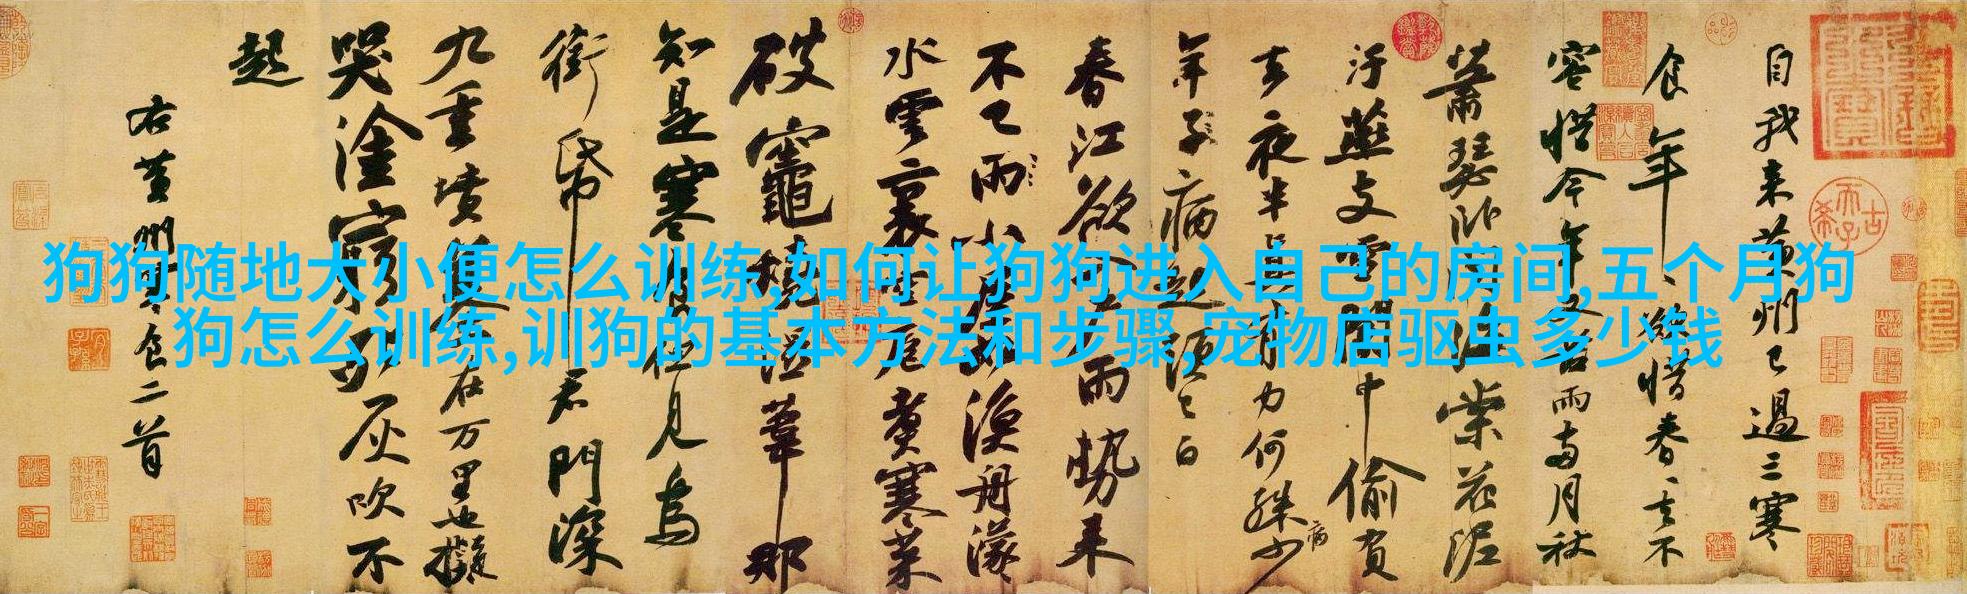 狗狗随地大小便怎么训练,如何让狗狗进入自己的房间,五个月狗
狗怎么训练,训狗的基本方法和步骤,宠物店驱虫多少钱
自我来黄州已過三寒
食年、欲惜春、去不
容惜今年又苦雨兩月秋
蕭瑟卧聞海棠花泥
汙燕支雪闇中偷負
去夜半真有力何殊少
病
年子病起須已白
春江欲入戶雨勢来
不已雨小屋如漁舟濛
水雲裏空庖煮寒菜
破竈燒濕葦那
知是寒食但見烏
銜帋君門深
九重墳墓在万里也擬
哭塗窮死灰吹不
起
右黄州寒食二首